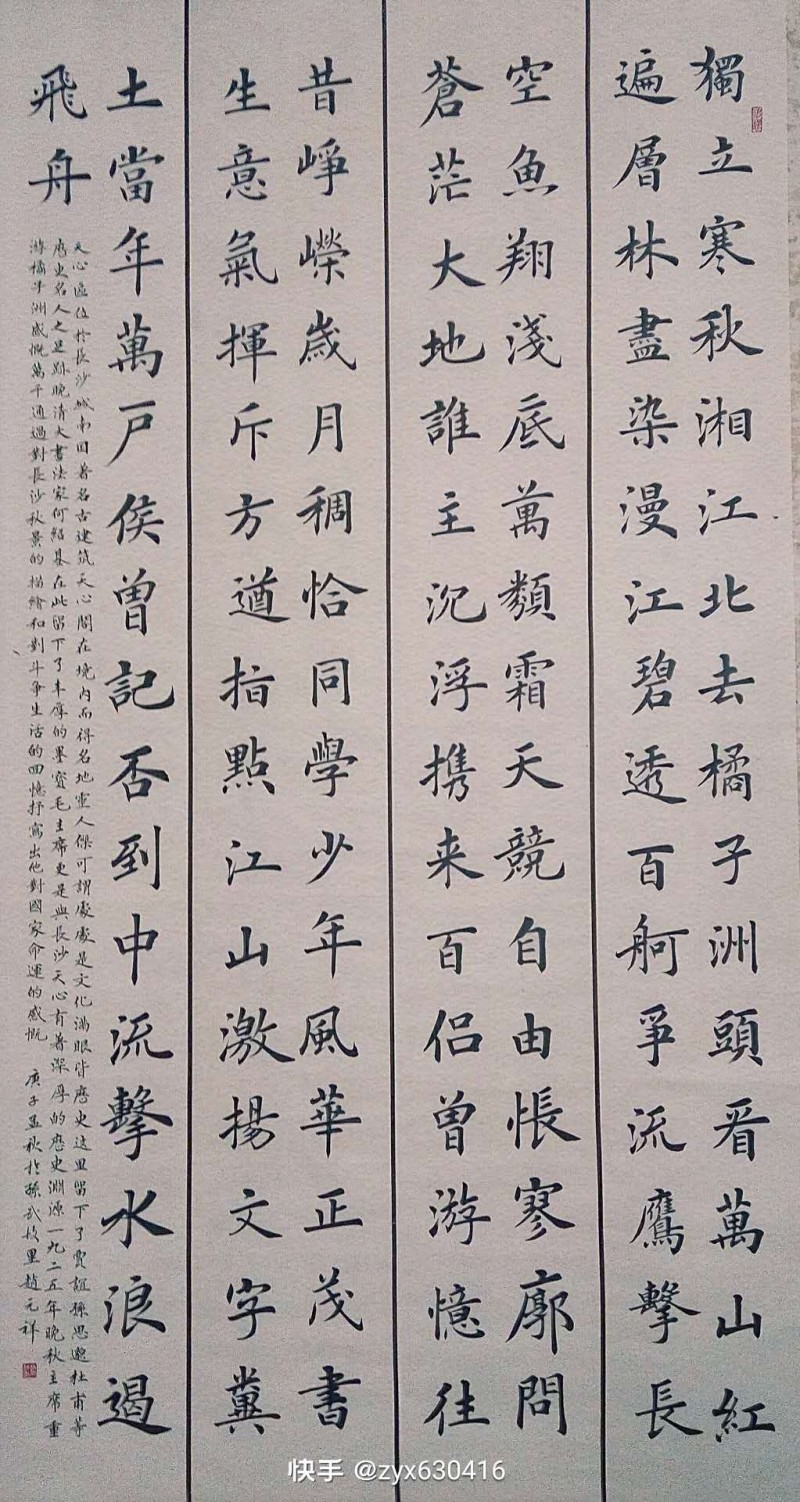 獨立寒秋湘江北去橘子洲頭看萬山紅
遍層林盡染漫江碧透百舸爭流鷹擊長
空魚翔淺底萬類霜天競自由悵寥廓問
蒼茫大地誰主沉浮携来百侣曾游憶往
昔崢嶸歲月稠恰同學少年風華正茂書
生意氣揮斥方遒指點江山激揚文字糞
土當年萬户侯曾記否到中流擊水浪遏
飛舟
天心區位於長沙城南因著名古建筑天心閣在境内而得名地靈人傑可謂處處是文化滿眼皆歷史这里留下了賈誼孫思邈杜甫等
歷史名人之足跡晚清大書法家何紹基在此留下了丰厚的墨寶毛主席更是與長沙天心有著深厚的歷史淵源一九二五年晚秋主席重
游橘子洲感慨萬千通過對長沙秋景的描繪和對斗争生活的回憶抒寫出他對國家命運的感慨 庚子孟秋於孫武故里趙元祥
快手 @zyx630416